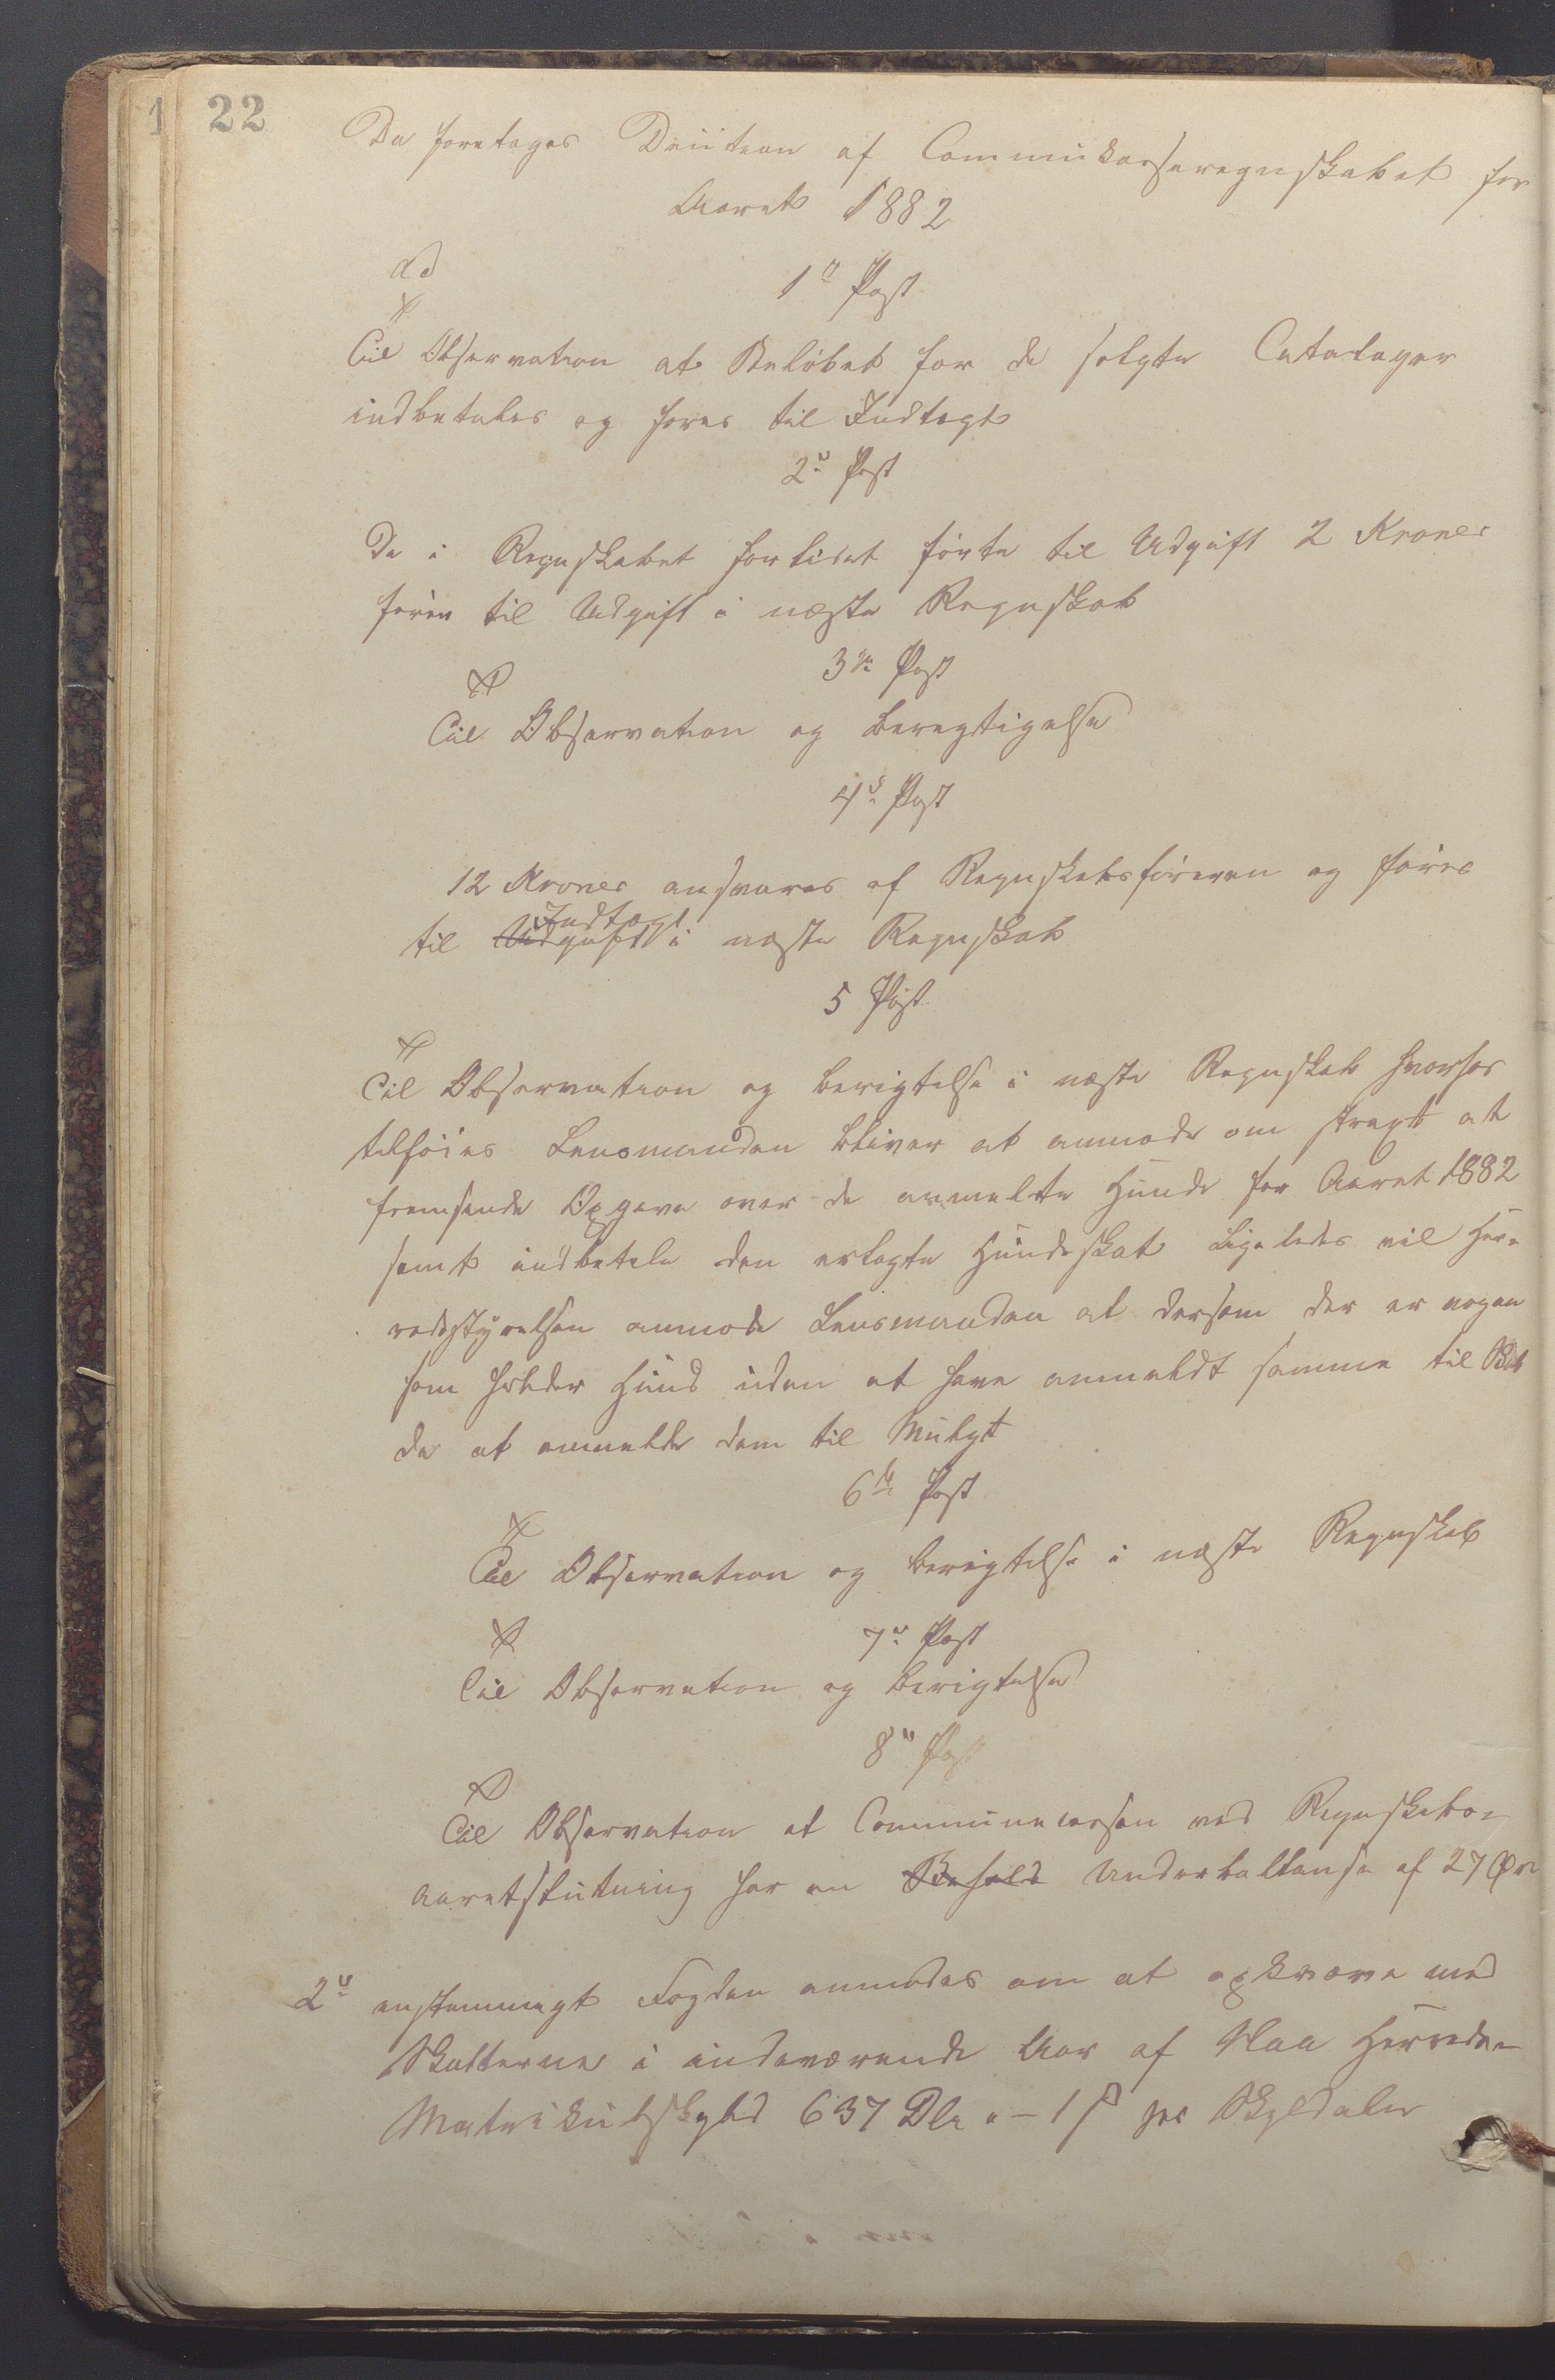 22
Da foretoges Deciition af Commukasseregnskabet for
Aaret 1882
ad
1st Post
Til Observation at Beløbet for de solgte Cataloger
indbetales og føres til Indtægt
2n Post
De i Regnskabet forlidet førte til Udgift 2 Kroner
føres til Udgift i næste Regnskab
3die Post
Til Observation og beregtigelse
4de Post
12 Kroner ansvares af Regnskabsføreren og føres
Indtægt
til Udgift i næste Regnskab
5 Post
Til Observation og berigtelse i næste Regnskab hvorhos
tilføies Lensmanden bliver at anmode om strægt at
fremsende Opgave over de anmeldte Hunde for Aaret 1882
samt indbetale den erlagte Hundeskat Ligeledes vil Her-
redsstyrelsen anmode Lensmanden at dersom der er nogen
som holder Hund uden at have anmeldt samme til
da at anmelde dem til Mulgt
6te Post
Til Observation og berigtelse i næste Regnskab
7de Post
Til Observation og berigtelse
8de Post
Til Observation at Communecassen ved Regnskabs-
aaretslutning har en Behold Underballanse af 27 Øre
2n enstemmigt Fogden anmodes om at opkræve med
Skatterne i indeværende Aar af Haa Herreds
Matrikulskyld 637 Dlr - 1 ß pr Skyldaler